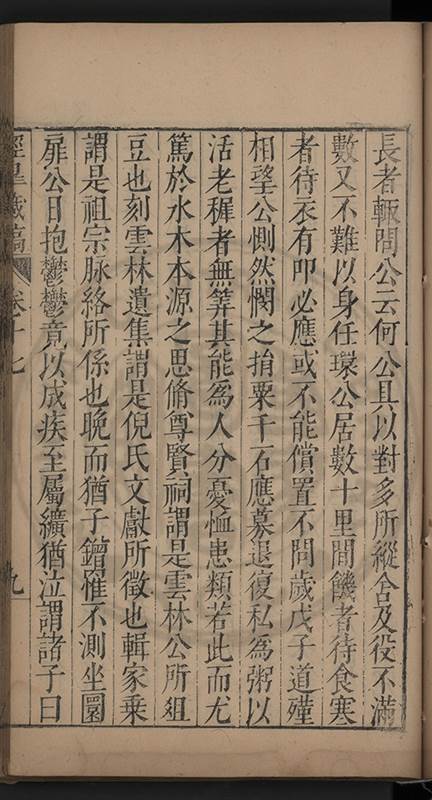 長者輙問公云何公具以對多所縱舍及役不滿
數又不難以身任環公居數十里間饑者待食寒
者待衣有叩必應或不能償置不問歲戊子道殣
相望公惻然憫之捐粟千石應募退復私為粥以
活老穉者無筭其能為人分憂恤患類若此而尤
篤於水木本源之思脩尊賢祠謂是雲林公所俎
豆也刻雲林遺集謂是倪氏文獻所徵也輯家乗
謂是祖宗脉絡所係也晚而猶子鐠罹不測坐圜
扉公日抱鬱鬱竟以成疾至屬纊猶泣謂諸子曰
藏稿 卷十七 九